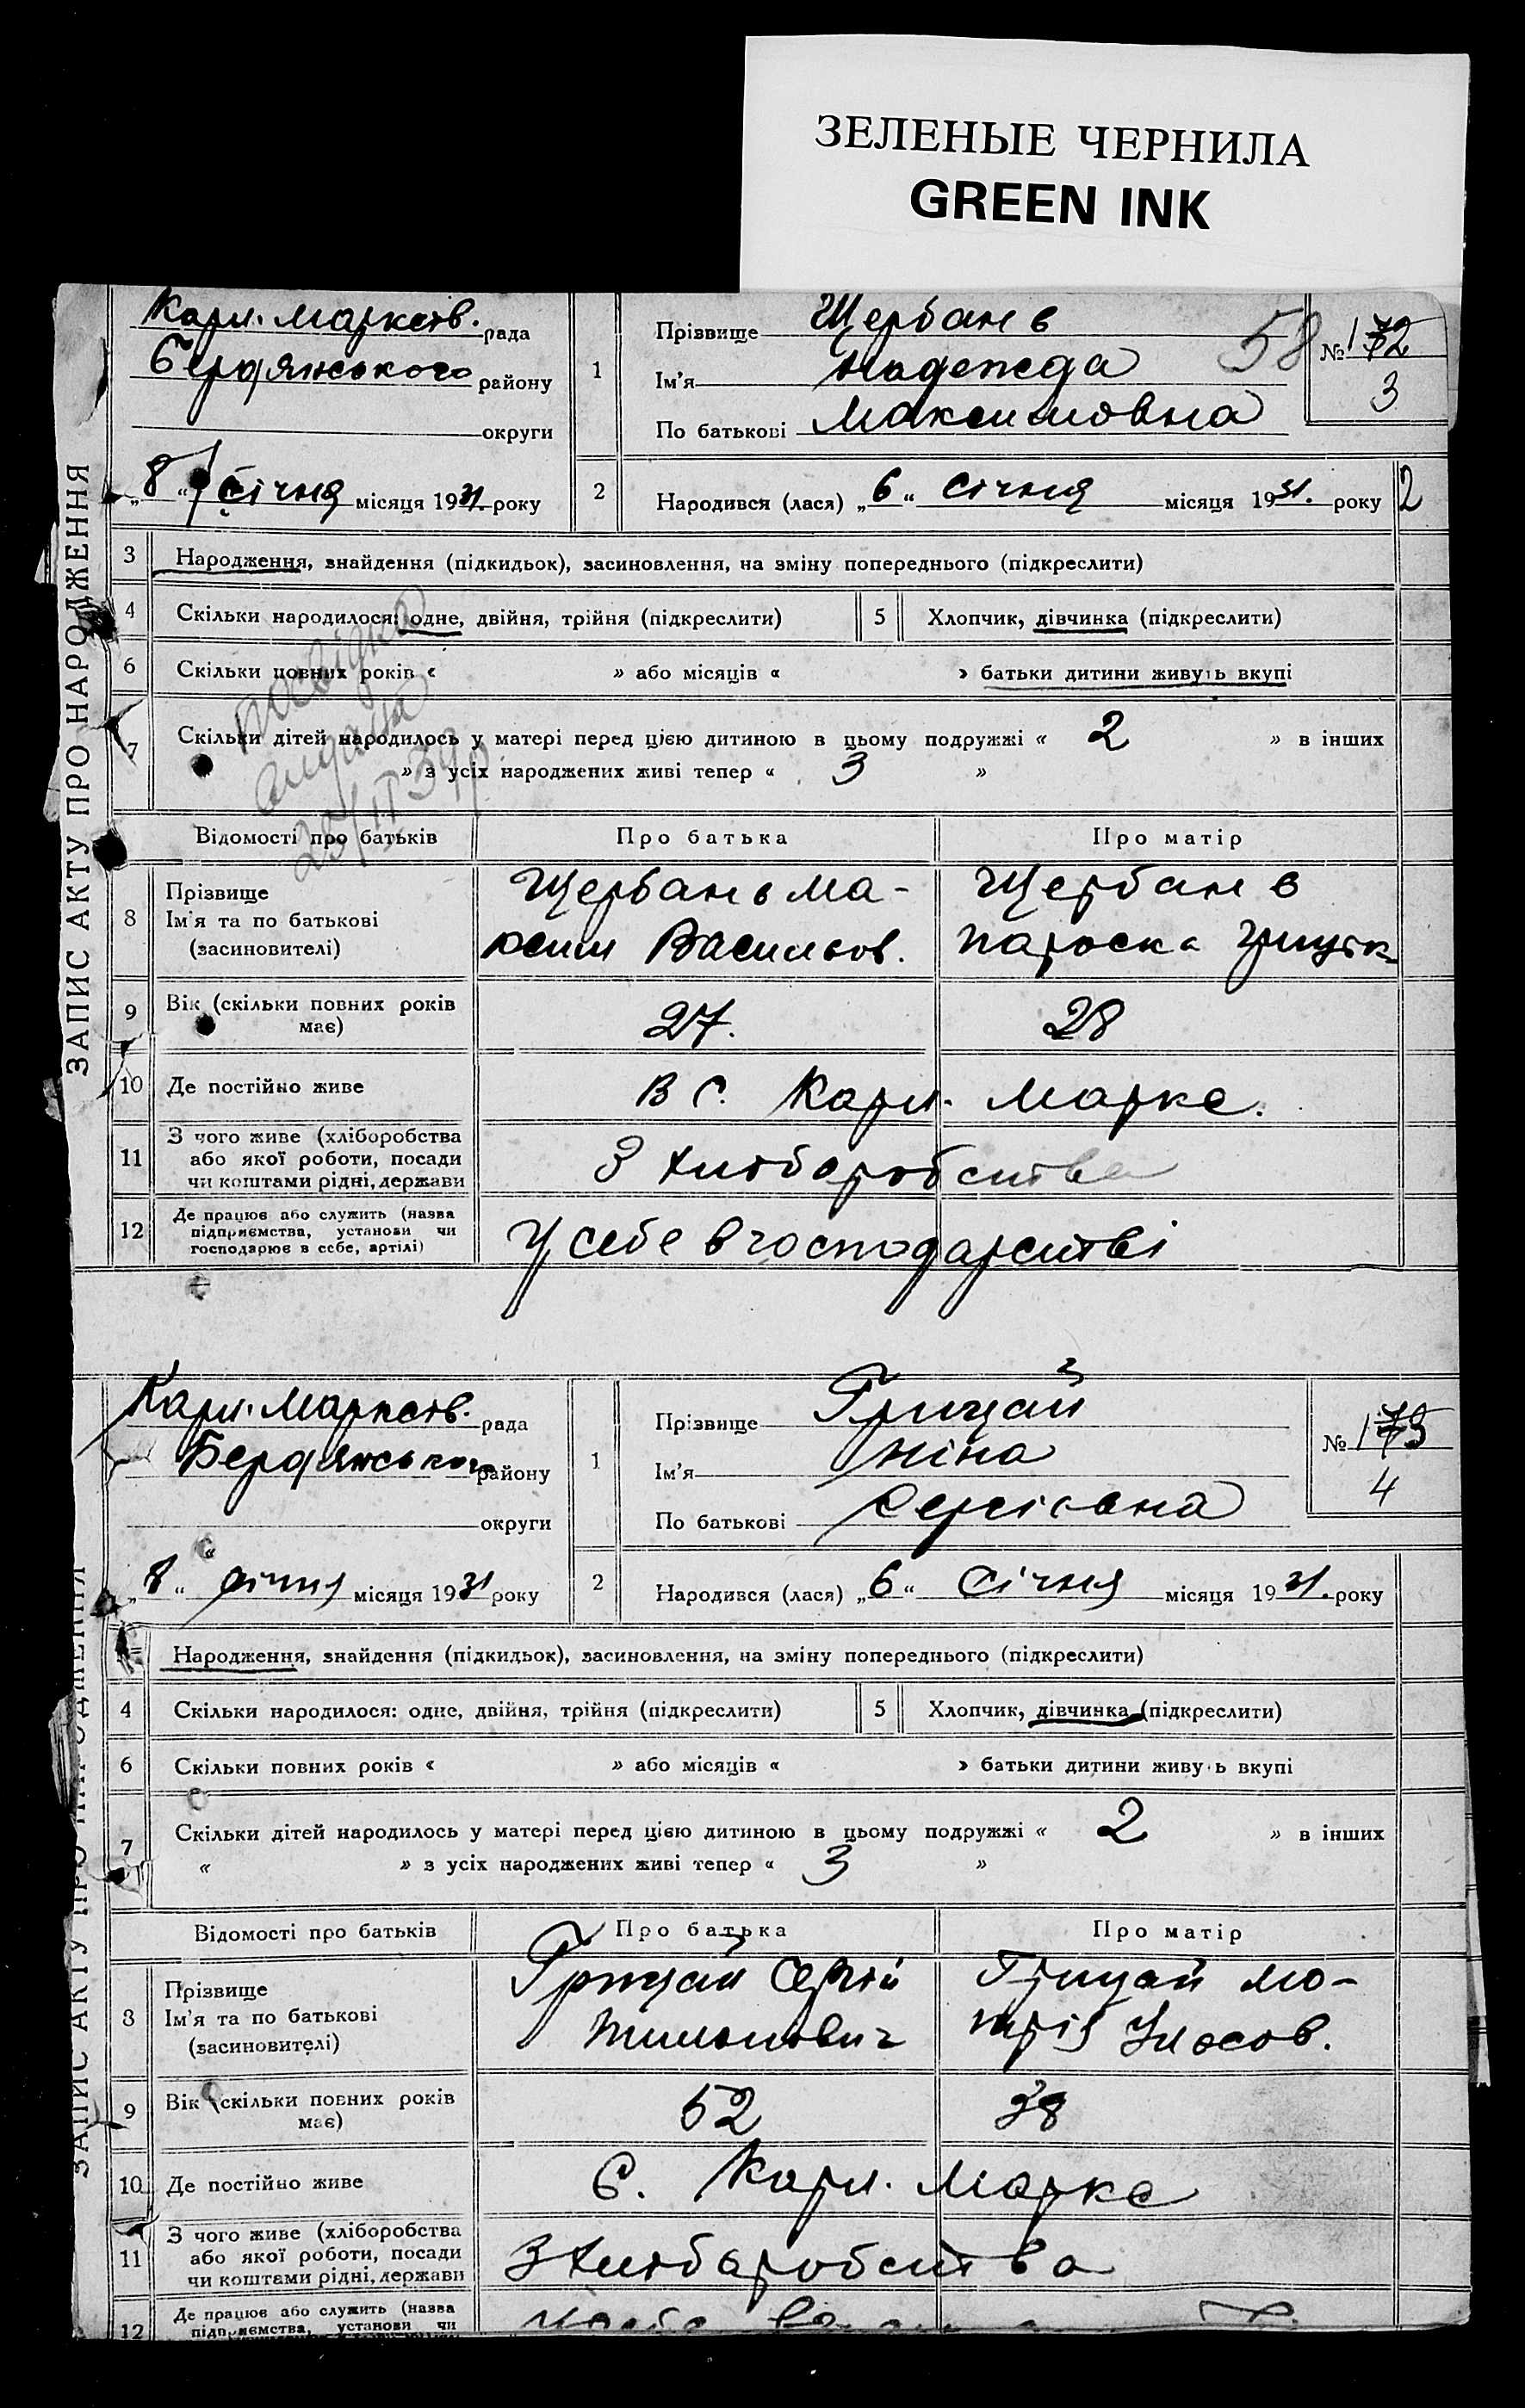 ЗЕЛЕНЫЕ ЧЕРНИЛА
GREEN INK
ЗАПИС АКТУ ПРО НАРОДЖЕННЯ
Карл. Марксів. рада
Бердянського району
округи
„8“ січня місяця 1931. року
1
Прізвище Щербань
Ім'я Надежда
По батькові Максимовна
58
№ 172
3
2
Народився (лася) „6“ січня місяця 1931. року
2
3 Народження, знайдення (підкидьок), засиновлення, на зміну попереднього (підкреслити)
4 Скільки народилося: одне, двійня, трійня (підкреслити) 5 Хлопчик, дівчинка (підкреслити)
6 Скільки повних років « » або місяців « » батьки дитини живуть вкупі
7 Скільки дітей народилось у матері перед цією дитиною в цьому подружжі « 2 » в інших
» з усіх народжених живі тепер « 3 »
Відомості про батьків Про батька Про матір
8 Прізвище
Ім'я та по батькові
(засиновителі)
Щербань Ма-
ксим Васильов.
Щербань
Параска
9 Вік (скільки повних років
має)
27. 28
10 Де постійно живе В с. Карл. Маркс.
11 З чого живе (хліборобства
або якої роботи, посади
чи коштами рідні, держави
З хліборобства
12 Де працює або служить (назва
підприємства, установи чи
господарює в себе, артілі)
У себе в господарстві
ЗАПИС АКТУ ПРО НАРОДЖЕННЯ
Карл. Марксів. рада
Бердянського району
округи
„8“ січня місяця 1931 року
1
Прізвище Грицай
Ім'я Ніна
По батькові Сергієвна
№ 173
4
2
Народився (лася) „6“ Січня місяця 1931. року
Народження, знайдення (підкидьок), засиновлення, на зміну попереднього (підкреслити)
4 Скільки народилося: одне, двійня, трійня (підкреслити) 5 Хлопчик, дівчинка (підкреслити)
6 Скільки повних років « » або місяців « » батьки дитини живу ь вкупі
7 Скільки дітей народилось у матері перед цією дитиною в цьому подружжі « 2 » в інших
« » з усіх народжених живі тепер « 3 »
Відомості про батьків Про батька Про матір
8 Прізвище
Ім'я та по батькові
(засиновителі)
Грицай Сергій
Грицай Мо-
трія
9 Вік (скільки повних років
має)
52 38
10 Де постійно живе С. Карл. Маркс
11 З чого живе (хліборобства
або якої роботи, посади
чи коштами рідні, держави
З хліборобства
12 Де працює або служить (назва
підприємства, установи чи